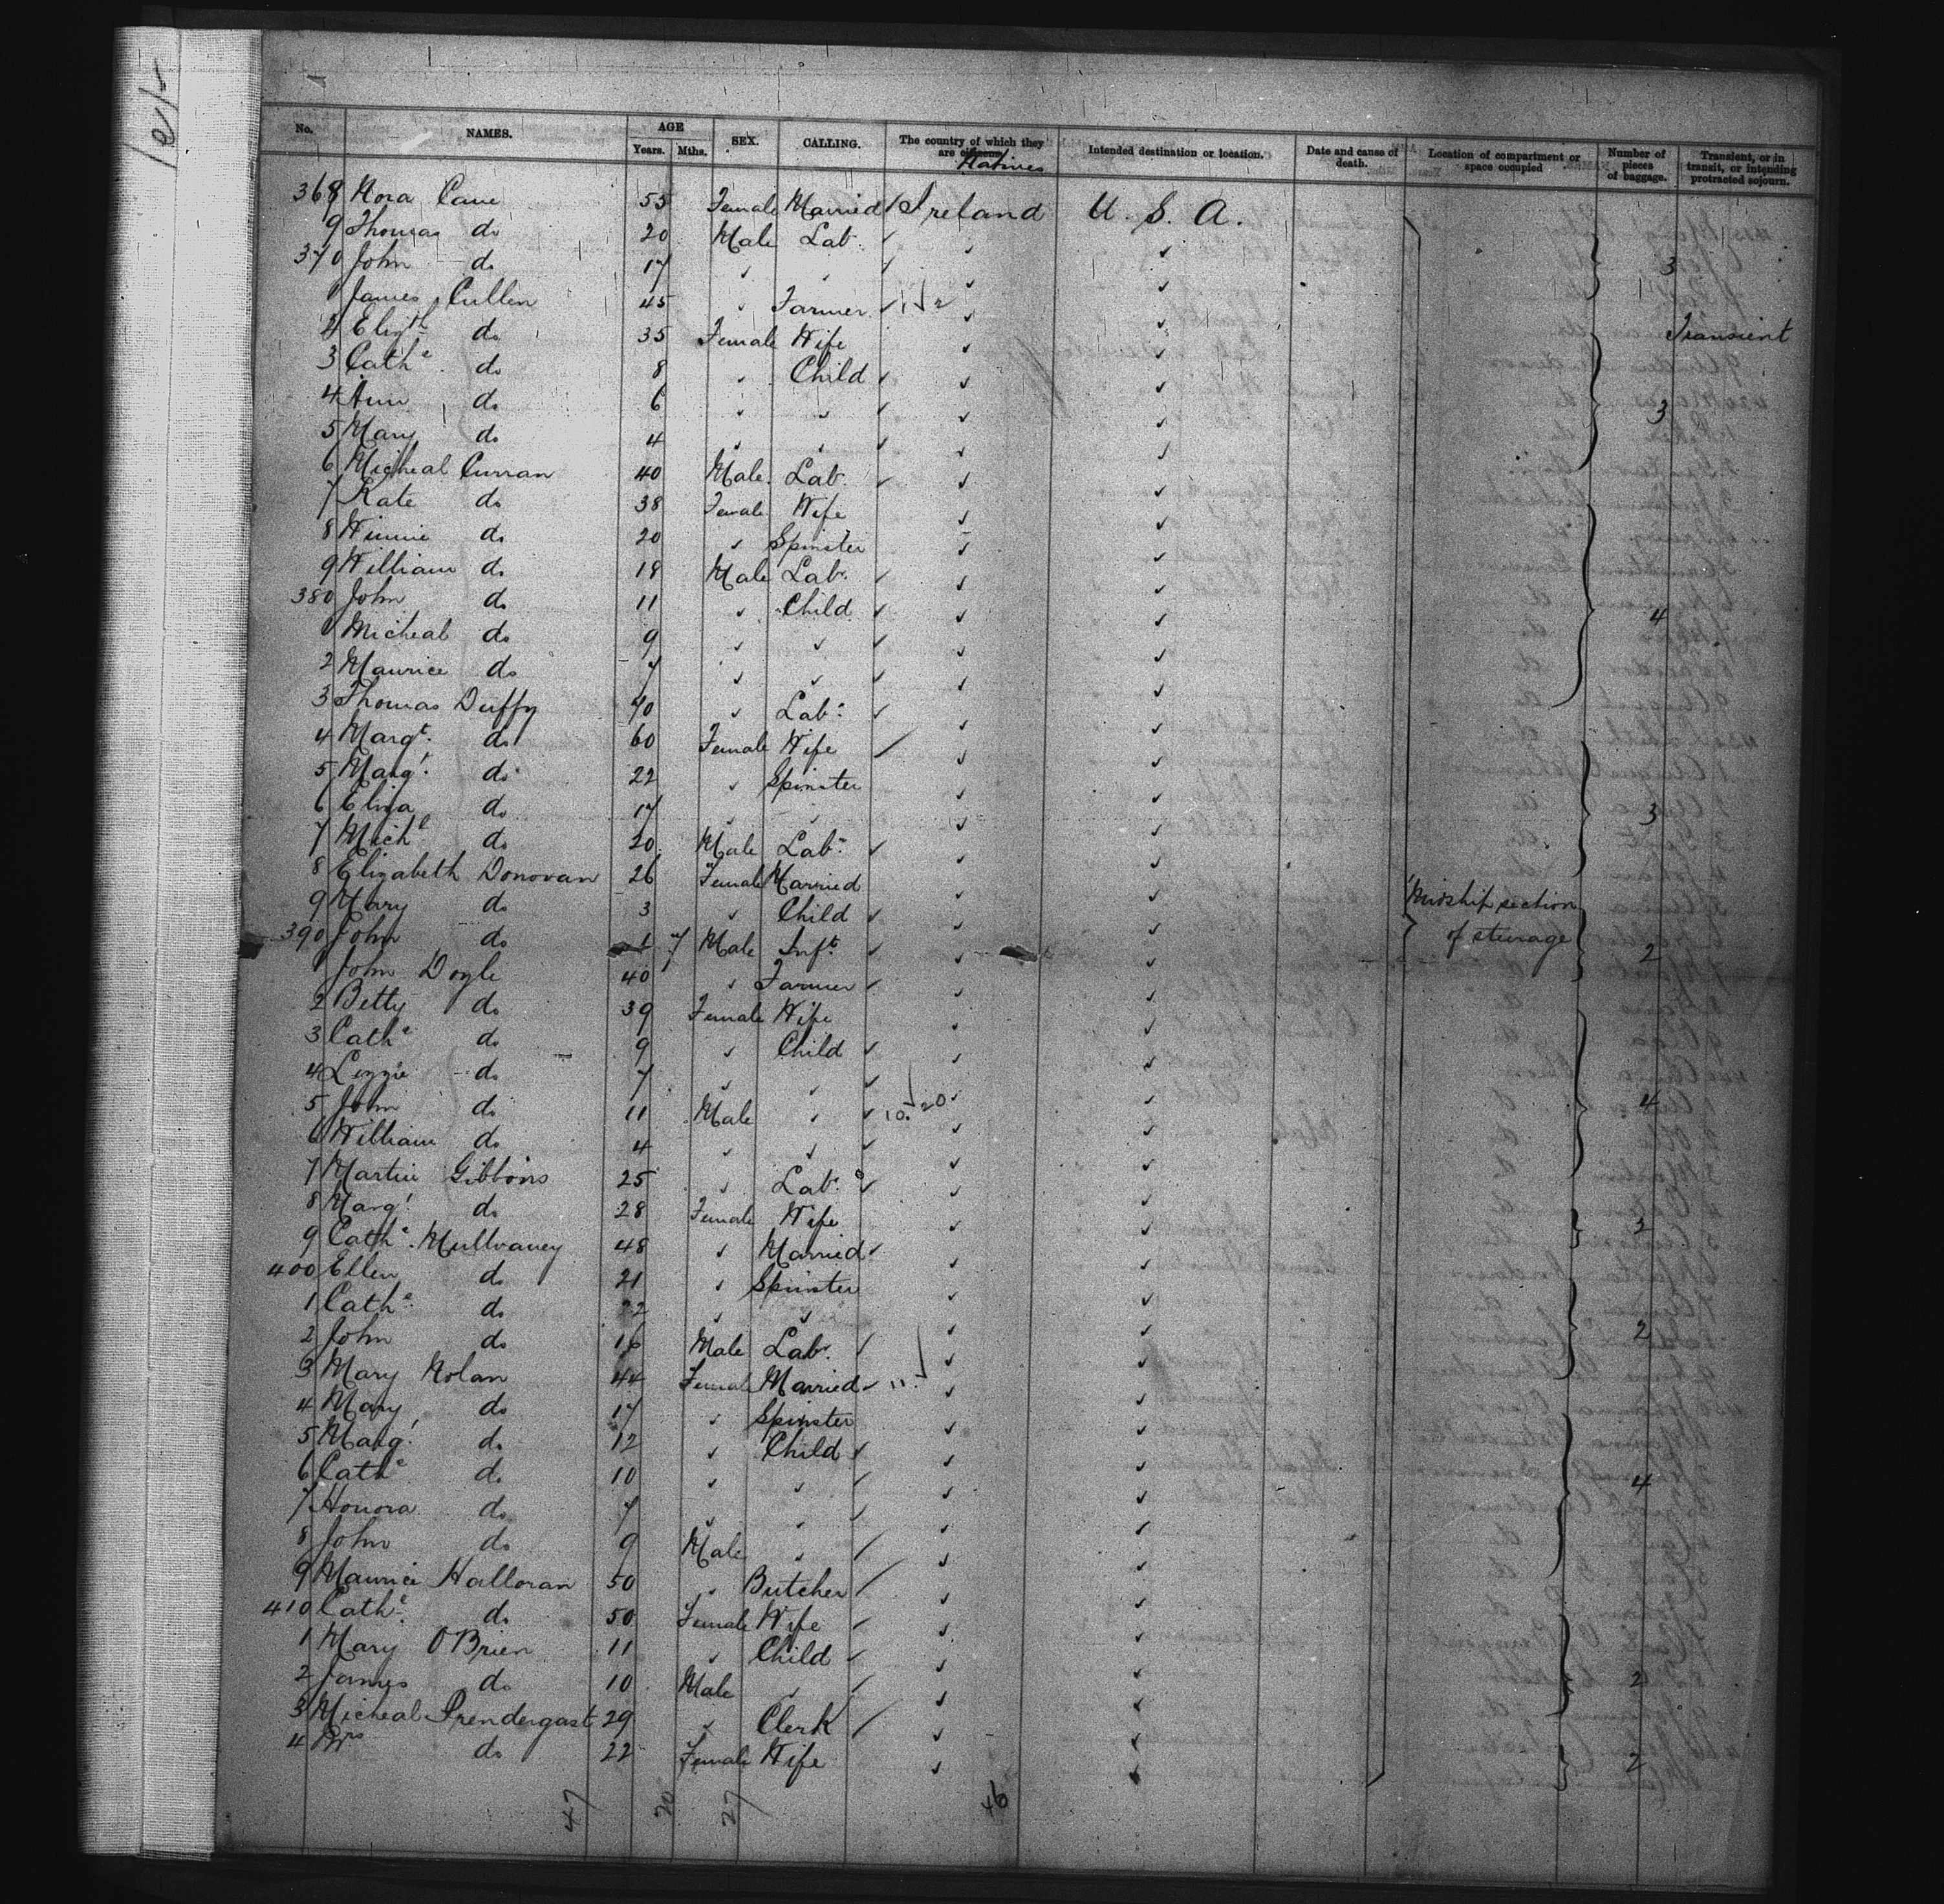 No. NAMES. AGE Years. Mths. SEX. CALLING. The country of which they are citizens Natives Intended destination or location. Date and cause of death. Location of compartment or space occupied Number of pieces of baggage. Transient, or in transit, or intending protracted sojourn.
368 Nora Cane 55 Female Married Ireland U. S. A.
9 Thomas do 20 Male Lab.
370 John do 17 3
1 James Cullen 45 Farmer
2 Elizth do 35 Female Wife Transient
3 Cathe do 8 Child
4 Ann do 6 3
5 Mary do 4
6 Micheal Curran 40 Male Lab.
7 Kate do 38 Female Wife
8 Winnie do 20 Spinster
9 William do 18 Male Lab.
380 John do 11 Child 4
1 Micheal do 9
2 Maurice do 7
3 Thomas Duffy 40 Labr
4 Margt. do 60 Female Wife
5 Margt. do 22 Spinster
6 Eliza do 17 3
7 Michl do 20 Male Labr
8 Elizabeth Donovan 26 Female Married
9 Mary do 3 Child Midship section
390 John do 1 7 Male Inft. of steerage 2
1 John Doyle 40 Farmer
2 Betty do 39 Female Wife
3 Cathe do 9 Child
4 Lizzie do 7
5 John do 11 Male 4
6 William do 4
7 Martin Gibbons 25 Labr
8 Margt. do 28 Female Wife 2
9 Cathe. Mullvaney 48 Married
400 Ellen do 21 Spinster
1 Cathe. do 22
2 John do 16 Male Labr. 2
3 Mary Nolan 44 Female Married
4 Mary do 17 Spinster
5 Margt. do 12 Child
6 Cathe do 10 4
7 Honora do 7
8 John do 9 Male
9 Maurice Halloran 50 Butcher
410 Cathe. do 50 Female Wife
1 Mary O'Brien 11 Child
2 James do 10 Male 2
3 Micheal Prendergast 29 Clerk
4 Mrs do 22 Female Wife 2
47 20 27 46